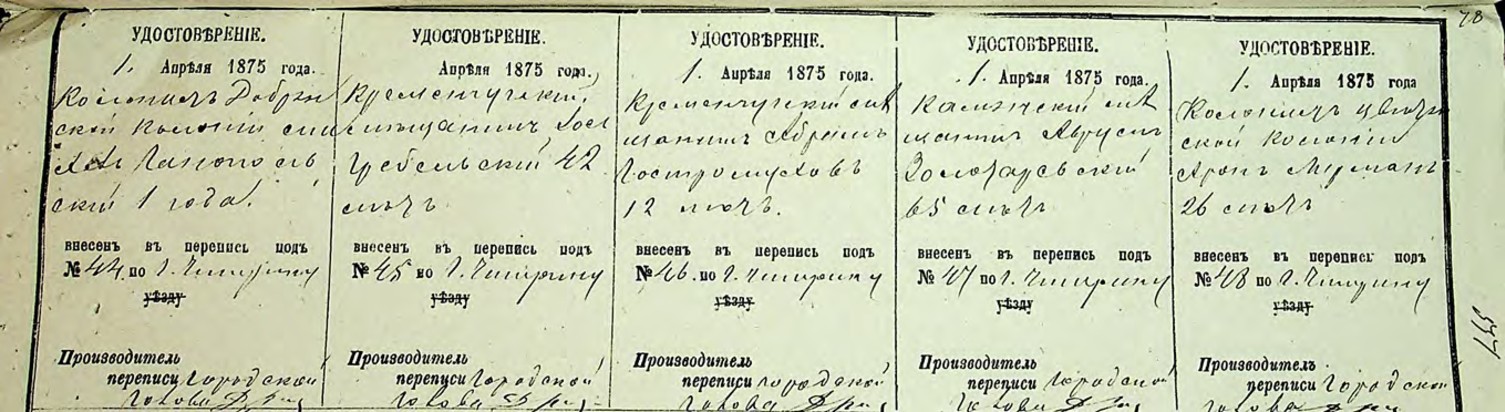 78
УДОСТОВѢРЕНІЕ.
1. Апрѣля 1875 года.
Колонистъ Добрян
ской колоніи
скій 1 года.
внесенъ въ перепись подъ
№ 44. по г. Чигирину
уѣзду
Производитель
переписи Городской
Голова
УДОСТОВѢРЕНІЕ.
Апрѣля 1875 года,
Кременчугскій
мѣщанинъ
Гребельскій 42
лѣтъ
внесенъ въ перепись подъ
№ 45 по г. Чигирину
уѣзду
Производитель
переписи Городской
Голова
УДОСТОВѢРЕНІЕ.
1. Апрѣля 1875 года
Кременчугскій мѣ
щанинъ Абрамъ
Гостромуховъ
12 лѣтъ.
внесенъ въ перепись подъ
№ 46. по г. Чигирину
уѣзду
Производитель
переписи городской
Голова
УДОСТОВѢРЕНІЕ.
1. Апрѣля 1875 года
мѣ
щанинъ
Золотаревскій
65 лѣтъ
внесенъ въ перепись подъ
№ 47 по г. Чигирину
уѣзду
Производитель
переписи Городской
Голова
УДОСТОВѢРЕНІЕ.
1. Апрѣля 1875 года
Колонистъ
ской колоніи
Аронъ
26 лѣтъ
внесенъ въ перепись подъ
№ 48 по г. Чигирину
уѣзду
Производитель
переписи Городской
Голова